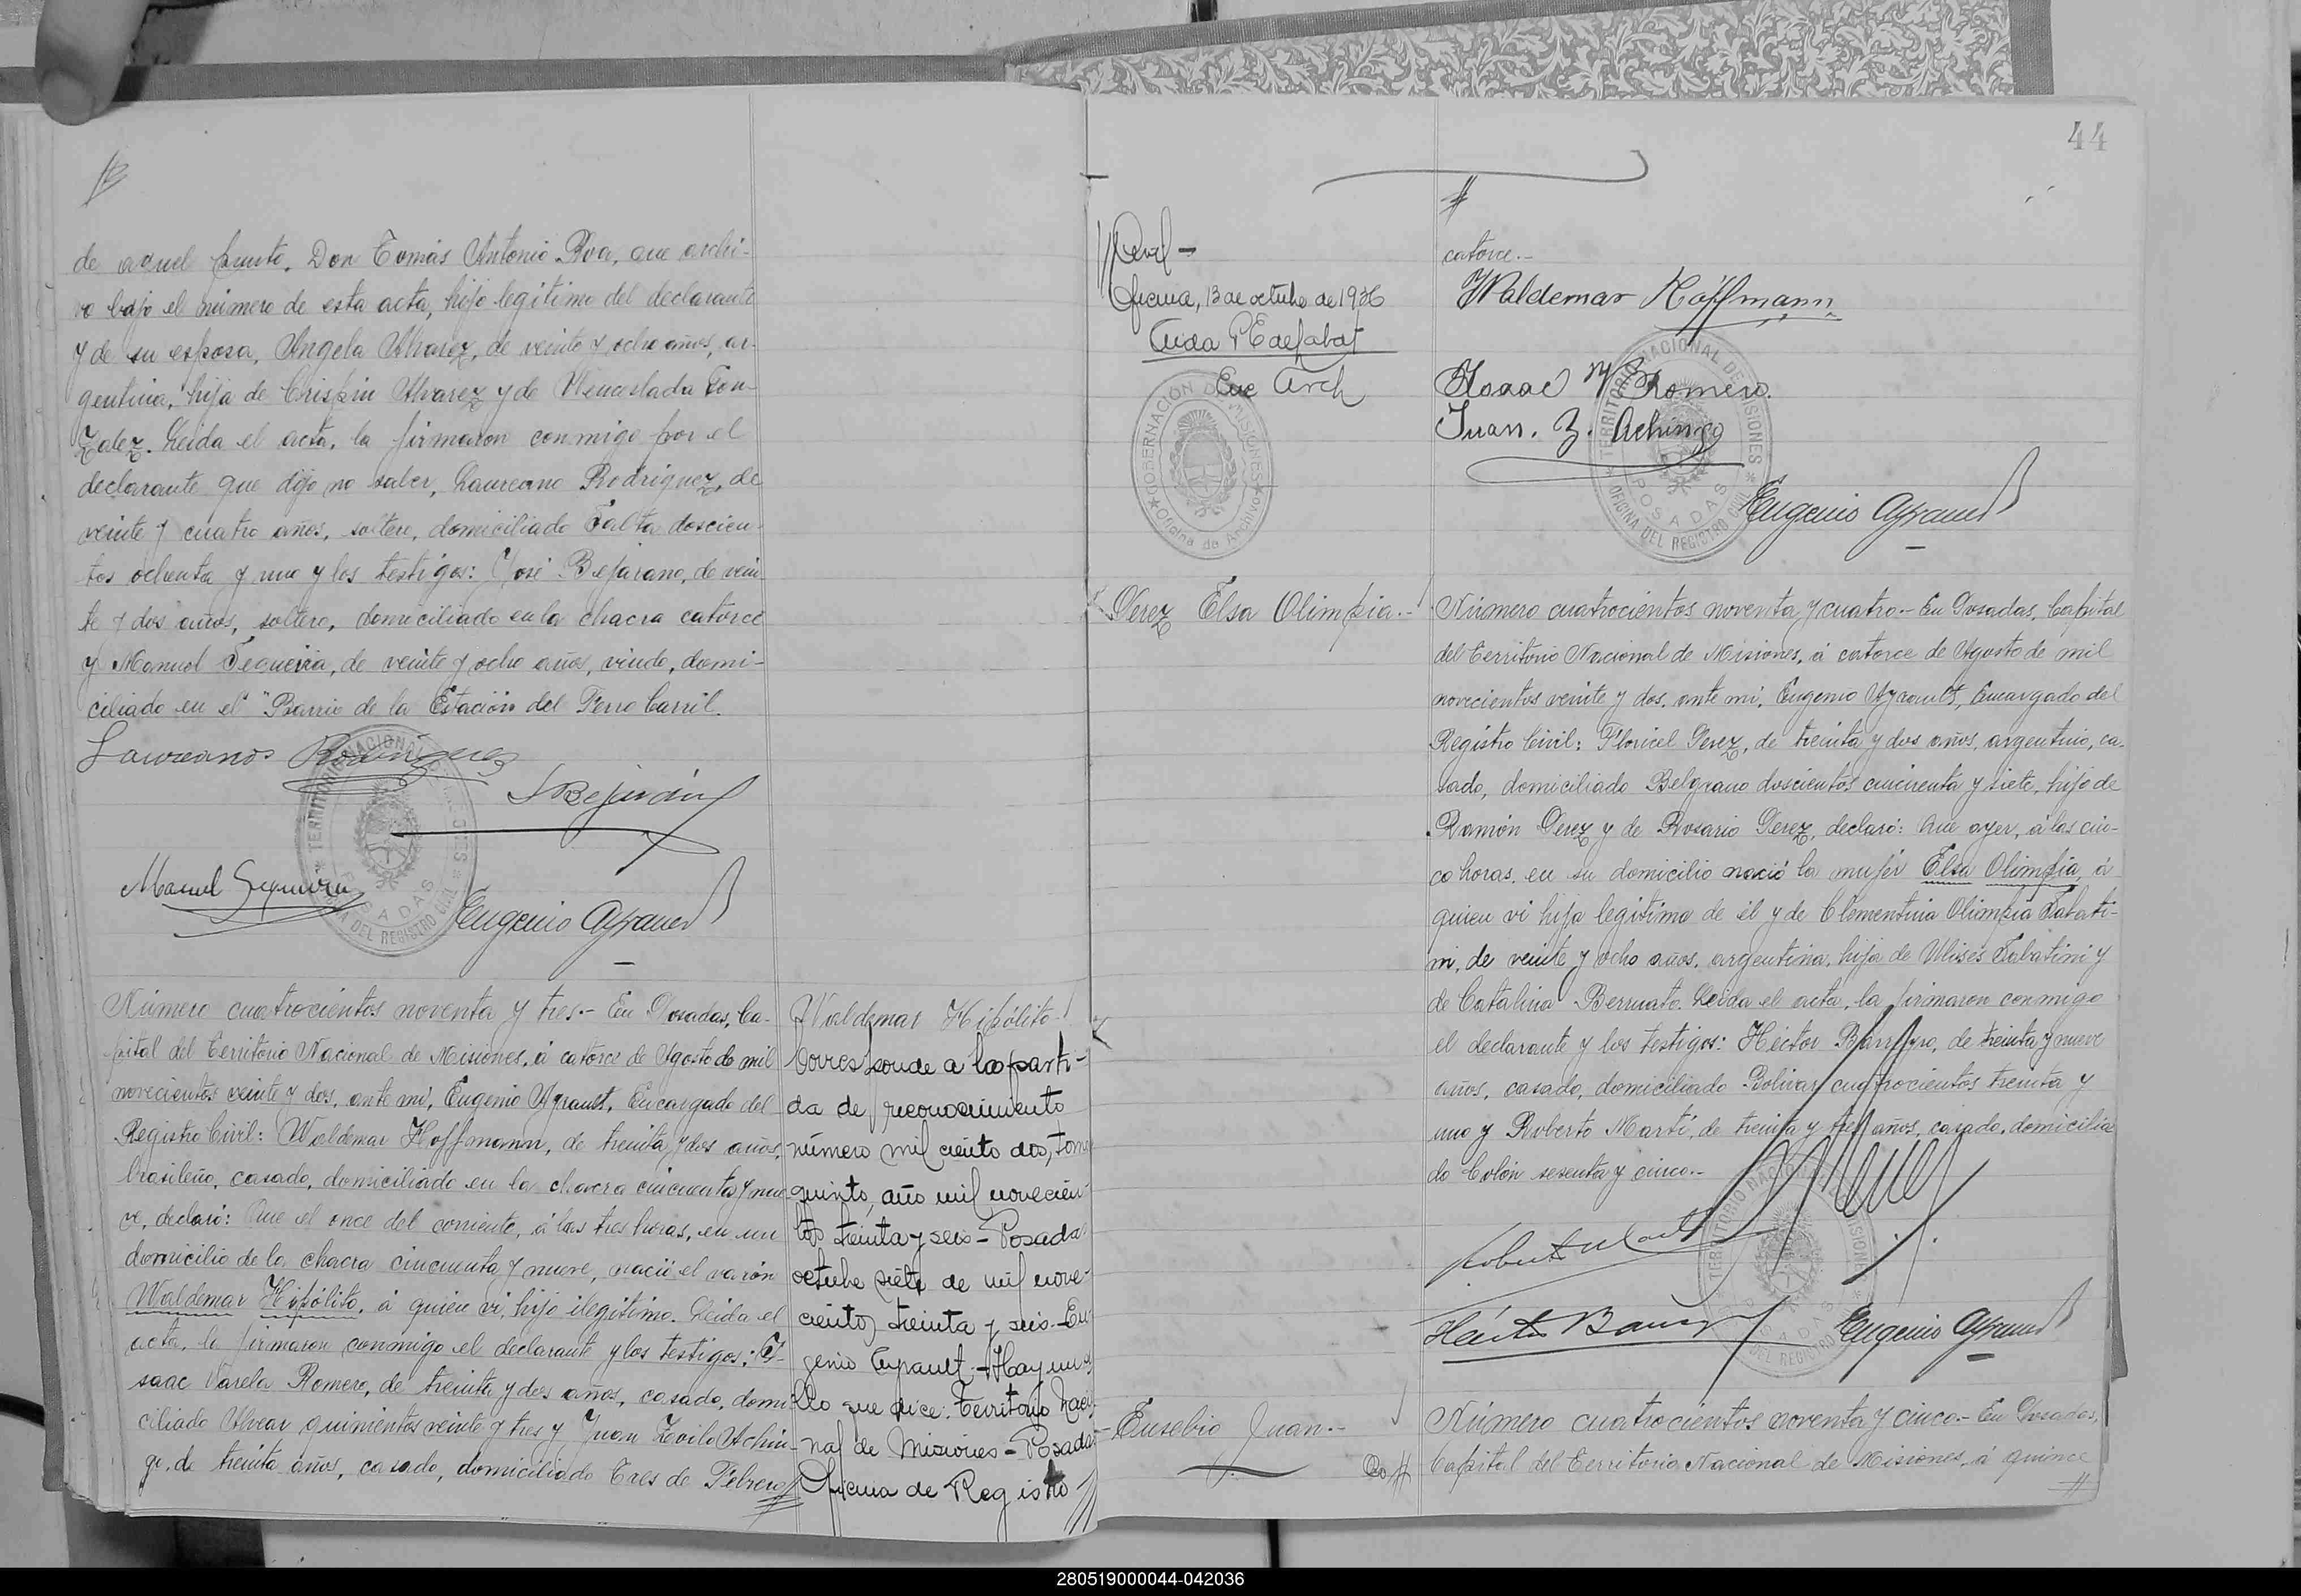 de aquel punto, Don Tomás Antonio Roa, que archi-
vo bajo el número de esta acta, hijo legítimo del declarante
y de su esposa, Angela Alvarez, de veinte y ocho años, ar-
gentina, hija de Crispin Alvarez y de Wenceslada Gon-
zalez. Leida el acta, la firmaron conmigo por el
declarante que dijo no saber, Laureano Rodriguez, de
veinte y cuatro años, soltero, domiciliado Salta doscien-
tos ochenta y uno y los testigos: José Bejarano, de vein-
te y dos años, soltero, domiciliado en la chacra catorce
y Manuel Sequeira, de veinte y ocho años, viudo, domi-
ciliado en el "Barrio de la Estación del Ferro Carril.
Laureano Rodriguez
J Bejarán
Manuel Sequeira
Eugenio Ayrault
TERRITORIO NACIONAL DE MISIONES
POSADAS
OFICINA DEL REGISTRO CIVIL
Número cuatrocientos noventa y tres.- En Posadas, Ca-
pital del Territorio Nacional de Misiones, á catorce de Agosto de mil
novecientos veinte y dos, ante mi, Eugenio Ayrault, Encargado del
Registro Civil: Waldemar Hoffmann, de treinta y dos años,
brasileño, casado, domiciliado en la chacra cincuenta y nue
ve, declaró: Que el once del corriente, á las tres horas, en un
domicilio de la chacra cincuenta y nueve, nació el varón
Waldemar Hipólito, á quien vi, hijo ilegítimo. Leida el
acta, la firmaron conmigo el declarante y los testigos: I-
saac Varela Romero, de treinta y dos años, casado, domi
ciliado Alvear quinientos veinte y tres y Juan Zoilo Achin-
go, de treinta años, casado, domiciliado Tres de Febrero
Waldemar Hipólito
Corresponde a la parti-
da de reconocimiento
número mil ciento dos, tomo
quinto, año mil novecien-
tos treinta y seis - Posadas
octubre siete de mil nove-
cientos treinta y seis.- Eu
genio Ayrault.- Hay un se
llo que dice: Territorio Nacio
nal de Misiones - Posadas -
Oficina de Registro
44
Civil -
Oficina, 13 de octubre de 1936
Enc Arch
GOBERNACIÓN DE MISIONES
Oficina de Archivo
catorce.-
Waldemar Hoffmann
Isaac V Romero
Juan. Z. Achingo
Eugenio Ayrault
TERRITORIO NACIONAL DE MISIONES
POSADAS
OFICINA DEL REGISTRO CIVIL
Perez Elsa Olimpia.-
Número cuatrocientos noventa y cuatro.- En Posadas, Capital
del Territorio Nacional de Misiones, á catorce de Agosto de mil
novecientos veinte y dos, ante mi, Eugenio Ayrault, Encargado del
Registro Civil: Floricel Perez, de treinta y dos años, argentino, ca-
sado, domiciliado Belgrano doscientos cincuenta y siete, hijo de
Ramón Perez y de Rosario Perez, declaró: Que ayer, á las cin-
co horas, en su domicilio nació la mujer Elsa Olimpia, á
quien vi hija legítima de él y de Clementina Olimpia Sabati-
ni, de veinte y ocho años, argentina, hija de Ulises Sabatini y
de Catalina Berruato. Leida el acta, la firmaron conmigo
el declarante y los testigos: Héctor Barreyro, de treinta y nueve
años, casado, domiciliado Bolivar cuatrocientos treinta y
uno y Roberto Martí, de treinta y tres años, casado, domicilia
do Colón sesenta y cinco.-
Roberto Martí
Héctor Barreyro
Eugenio Ayrault
TERRITORIO NACIONAL DE MISIONES
POSADAS
OFICINA DEL REGISTRO CIVIL
Eusebio Juan.-
Número cuatrocientos noventa y cinco.- En Posadas,
Capital del Territorio Nacional de Misiones, á quince
280519000044-042036